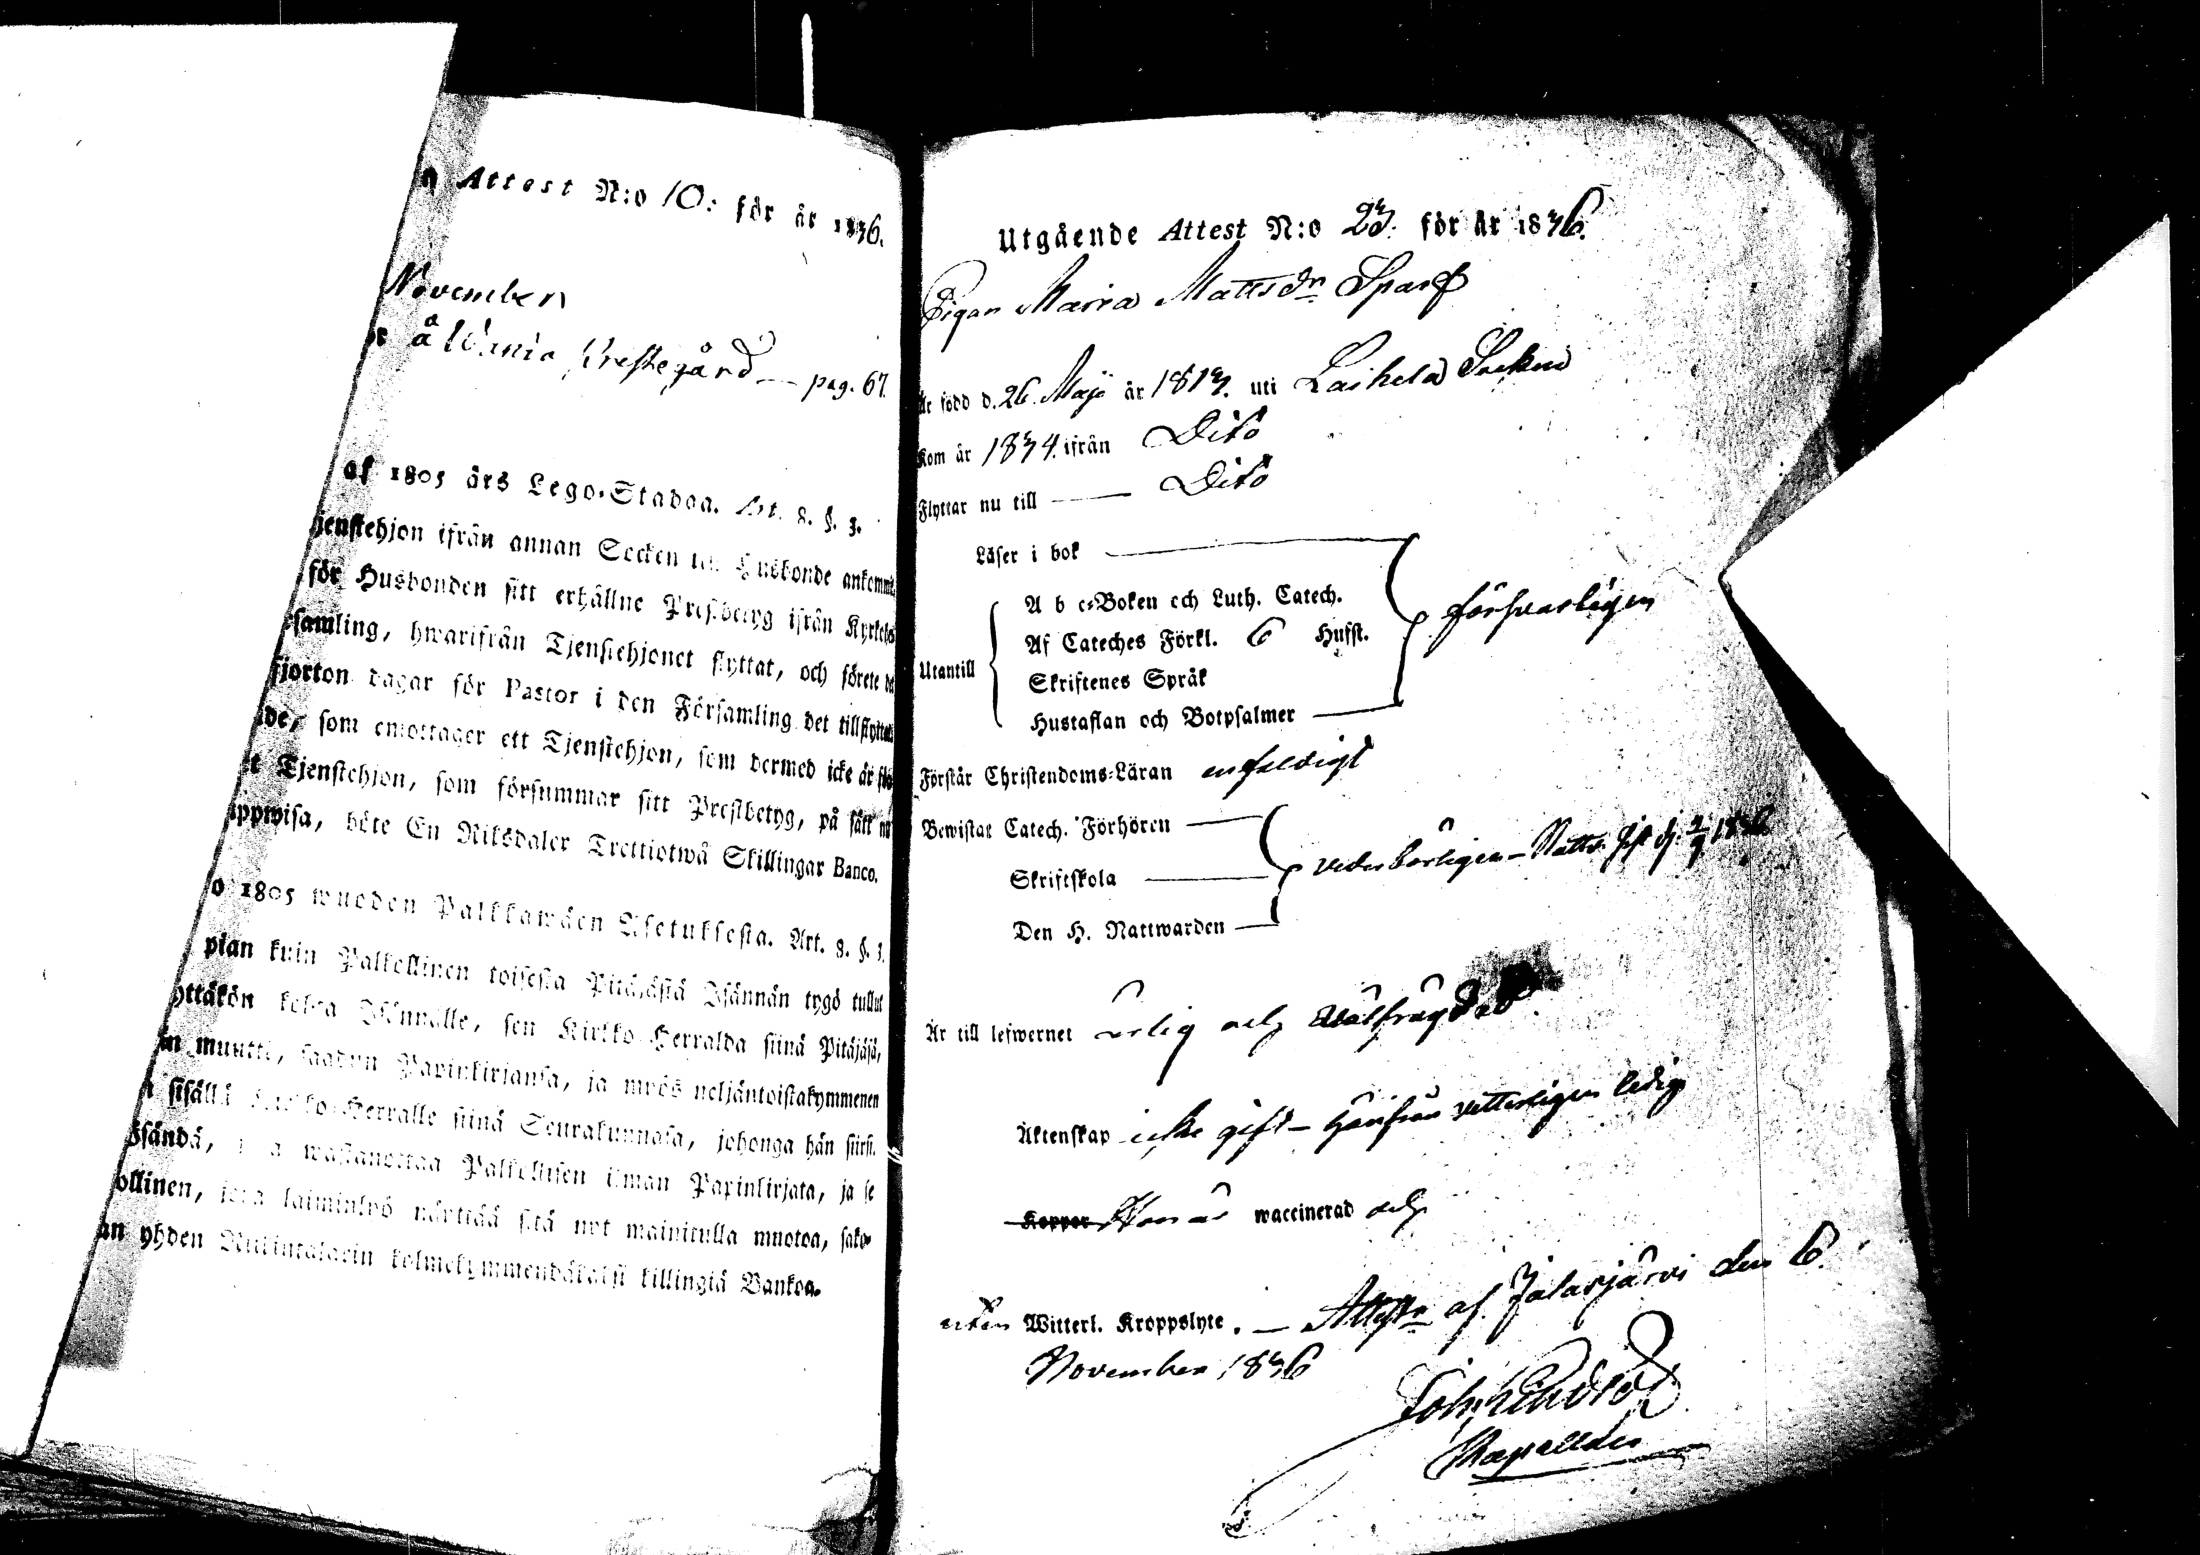 Attest N:o 10: för år 1836.
November
å Wania Prestegård — pag. 67.
af 1805 års Lego-Stadga. Art. 8. §. 3.
jenstehjon ifrån annan Socken till Husbonde ankommit
för Husbonden sitt erhållne Prestbetyg ifrån Kyrkoh
samling, hwarifrån Tjenstehjonet flyttat, och förete de
fjorton dagar för Pastor i den Församling det tillflyttat
de, som emottager ett Tjenstehjon, som dermed icke är
t Tjenstehjon, som försummar sitt Prestbetyg, på sätt nu
uppwisa, böte En Riksdaler Trettiotwå Skillingar Banco.
o 1805 wuoden Palkkawäen Asetuksesta. Art. 8. §. 3.
pian kuin Palkollinen toisesta Pitäjästä Isännän tygö tullut
yttäkön Isännälle, sen Kirkko-Herralda siinä Pitäjäsä,
muutti, saadun Papinkirjansa, ja myös neljäntoistakymmenen
sisällä Kirkko-Herralle siinä Seurakunnasa, johonga hän siirt.
Isändä, joka wastanottaa Palkollisen ilman Papinkirjata, ja se
ollinen, joka laiminlyö näyttää sitä nyt mainitulla muotoa, sako-
an yhden Riikintalarin kolmekymmendäkaksi killingiä Bankoa.
Utgående Attest N:o 23. för år 1836.
Pigan Maria Mattsdr Sparf
Är född d. 26. Maji år 1813. uti Laihela Socken
Kom år 1834. ifrån Dito
Flyttar nu till — Dito
Läser i bok
A b c-Boken och Luth. Catech.
Af Cateches Förkl. 6 Hufst.
försvarligen
Utantill
Skriftenes Språk
Hustaflan och Botpsalmer
Förstår Christendoms-Läran enfaldigt
Bewistat Catech. Förhören
Skriftskola
vederbörligen – Nattv. sist d. 2/9 1836
Den H. Nattwarden
Är till lefwernet ärlig och wälfrägdad.
Äktenskap icke gift – härifrån vitterligen ledig
Koppor Hon är waccinerad och
utan Witterl. Kroppslyte. — Attest. af Jalasjärvi den 6.
November 1836
Kapellan